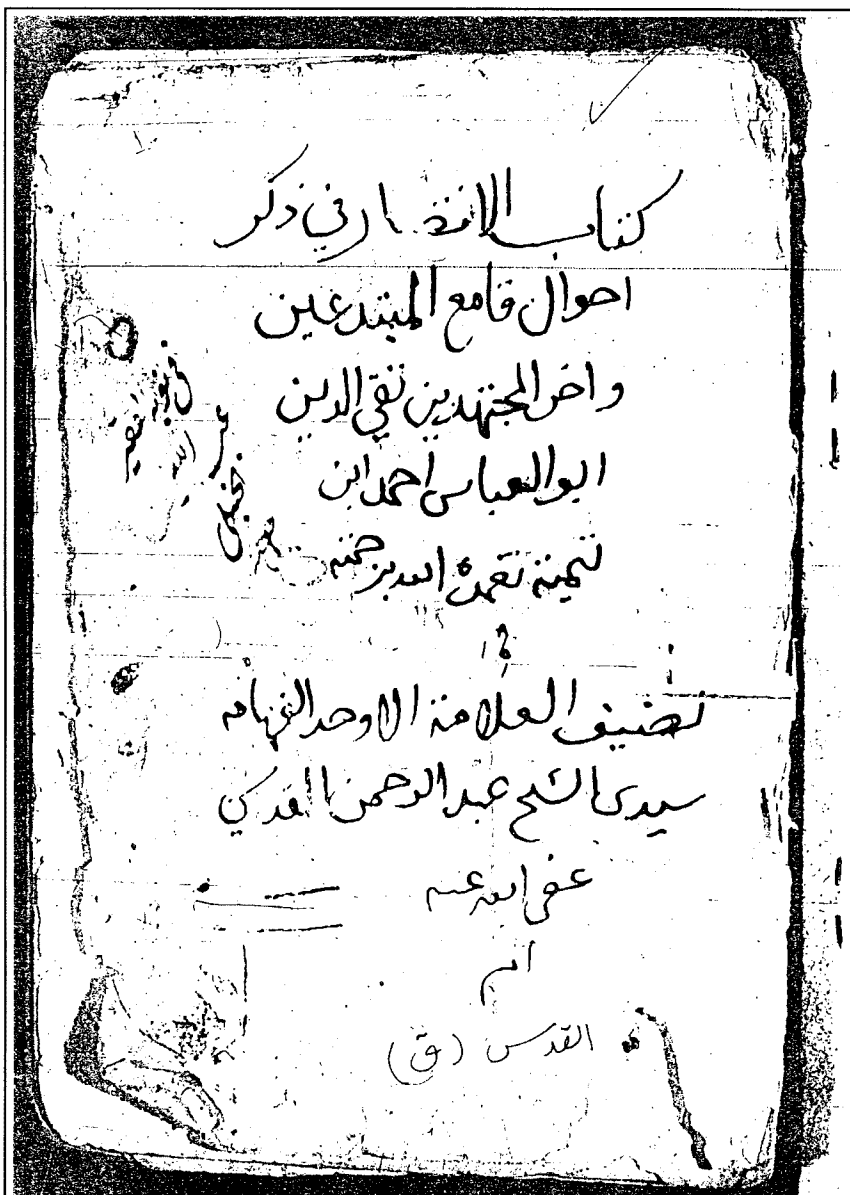 كتاب الانتصار في ذكر
احوال قامع المبتدعين
واخر المجتهدين تقي الدين
ابو العباس احمد ابن
تيمية تغمده الله برحمته
تصنيف العلامة الاوحد الفهامه
سيدى الشيخ عبد الرحمن المقدسي
عفى الله عنه
ام
القدس (ق)